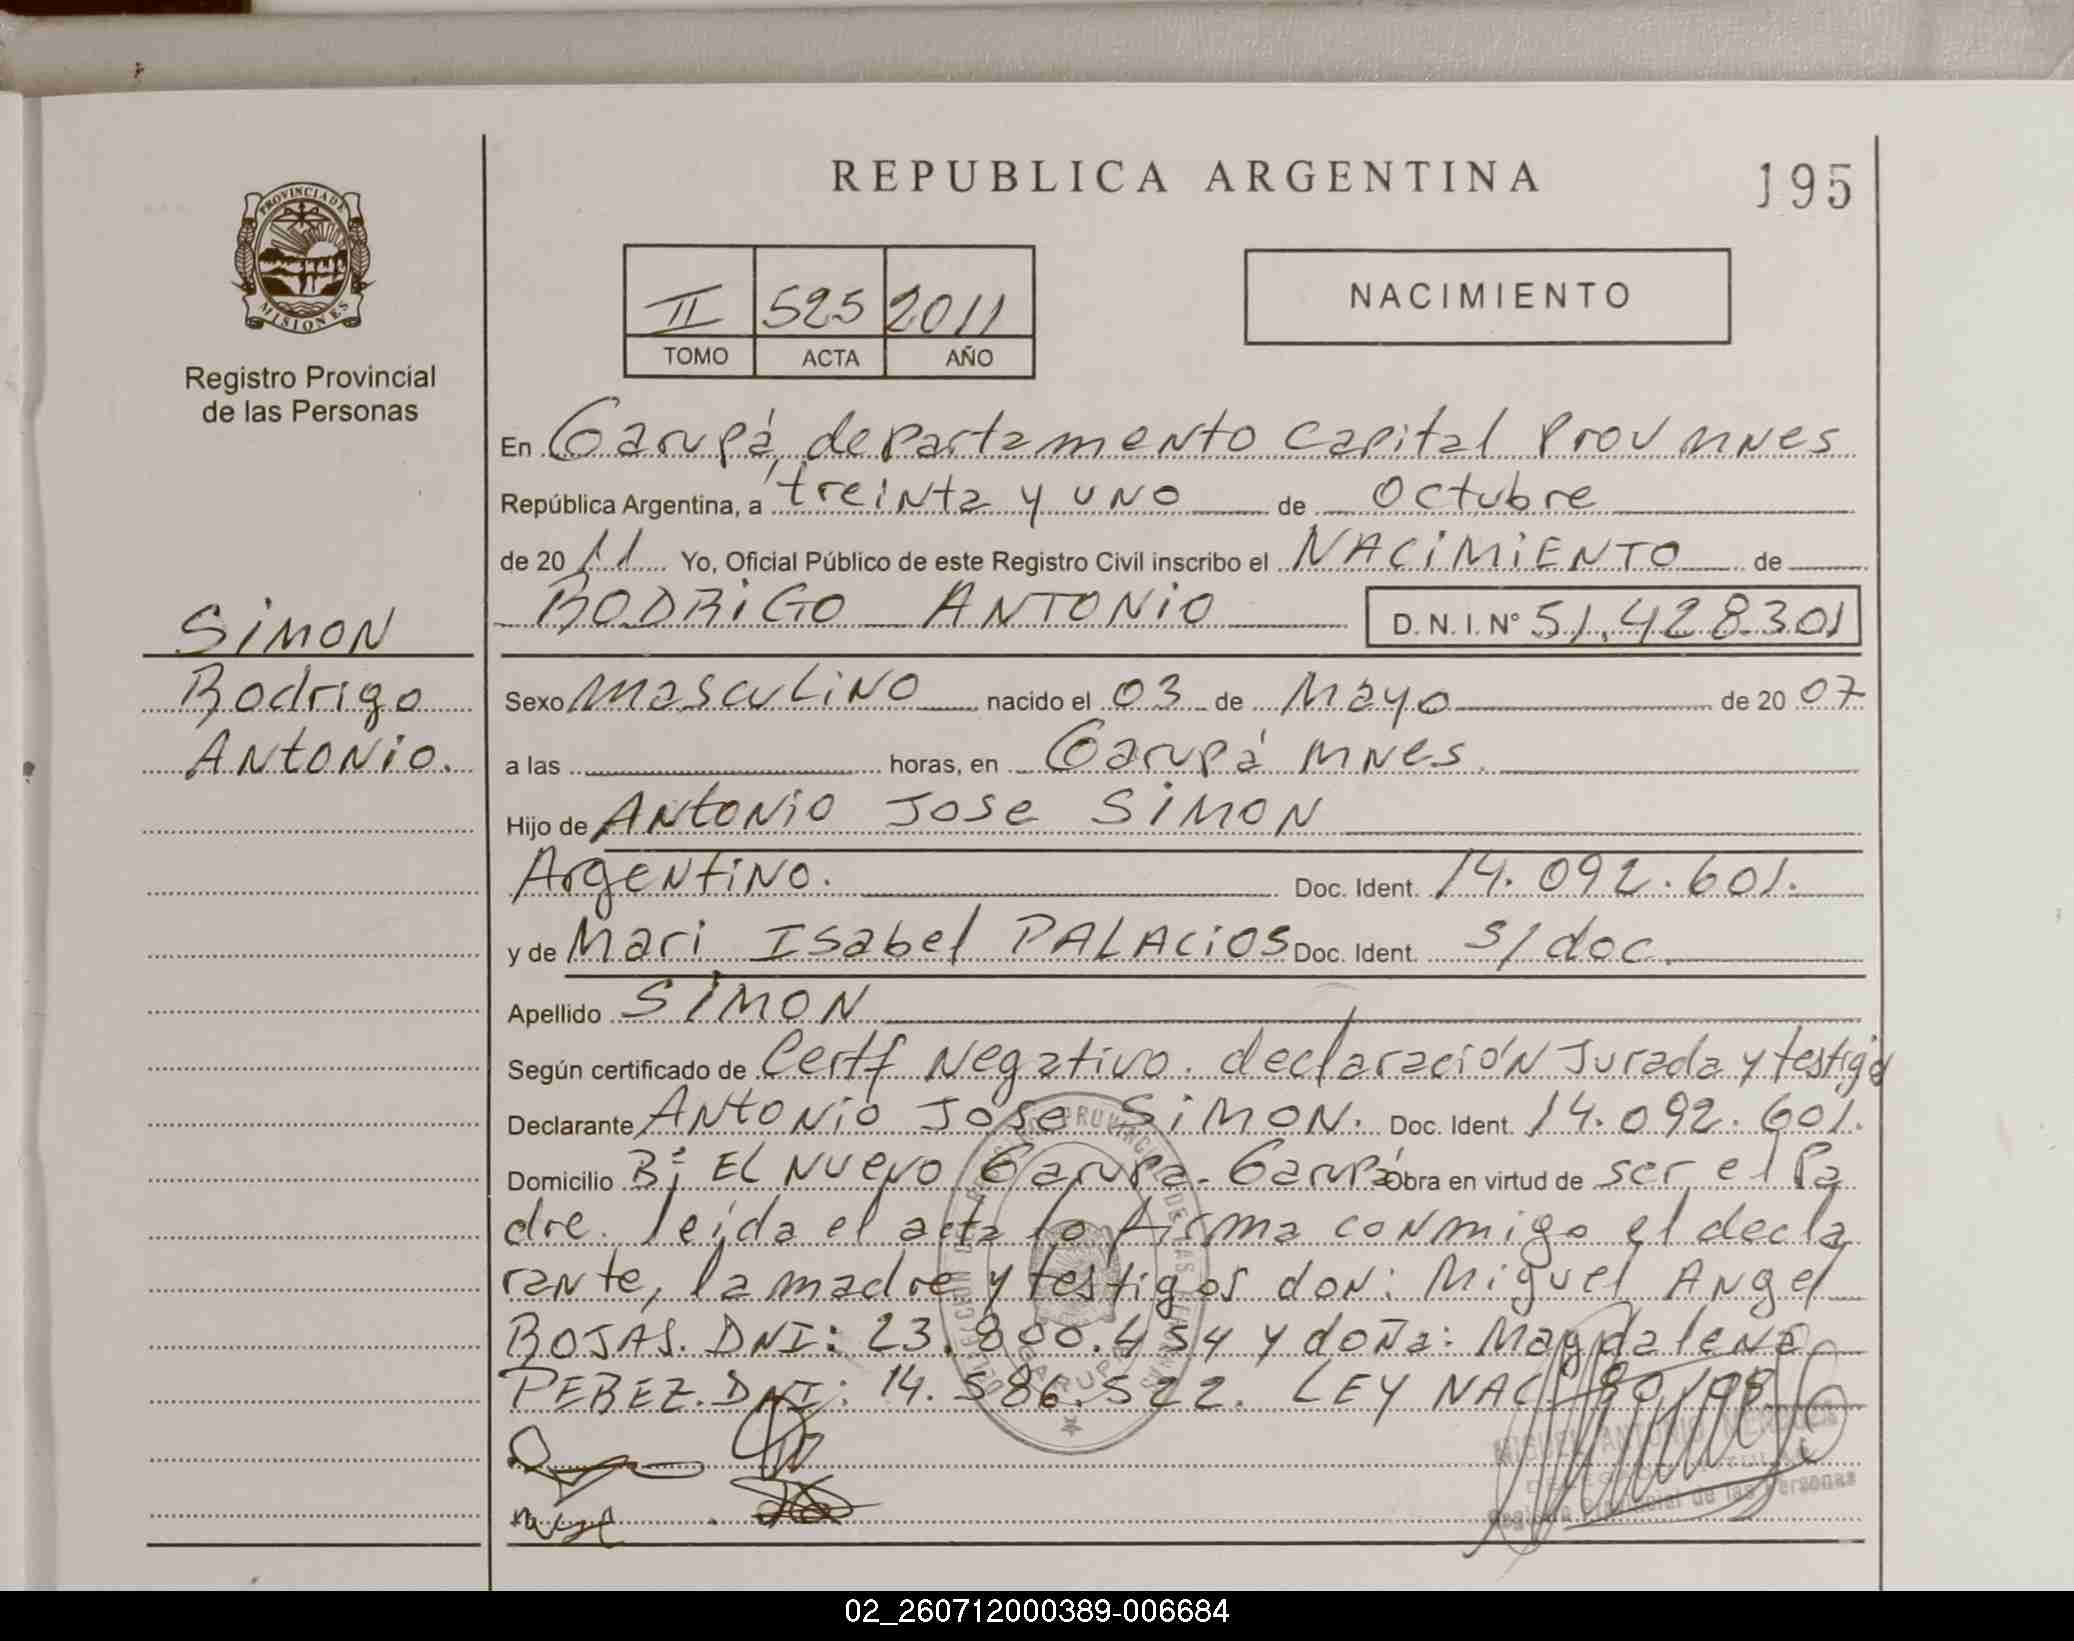 REPUBLICA ARGENTINA
195
PROVINCIA DE
MISIONES
Registro Provincial
de las Personas
II 525 2011
TOMO ACTA AÑO
NACIMIENTO
En Garupá, departamento Capital Prov mnes
República Argentina, a treinta y uno de Octubre
de 2011 Yo, Oficial Público de este Registro Civil inscribo el NACIMIENTO de
RODRIGO ANTONIO D.N.I. Nº 51.428.301
SIMON
Rodrigo
ANtONio.
Sexo masculino nacido el 03 de Mayo de 2007
a las horas, en Garupá mnes.
Hijo de ANtONio Jose SIMON
ArgeNtiNo. Doc. Ident. 14.092.601.
y de Mari Isabel PALACIOS Doc. Ident. s/doc.
Apellido SIMON
Según certificado de Certf Negativo. declaración Jurada y testigo
Declarante ANtONio Jose SIMON. Doc. Ident. 14.092.601.
Domicilio Bº EL Nuevo Garupa - Garupá Obra en virtud de ser el Pa
dre. leida el acta lo firma conmigo el decla
rante, la madre y testigos don: Miguel Angel
ROJAS. DNI: 23.800.454 y doña: Magdalena
PEREZ. DNI: 14.586.522. LEY NAC
MIGUEL ANTONIO
Registro Provincial de las Personas
02_260712000389-006684